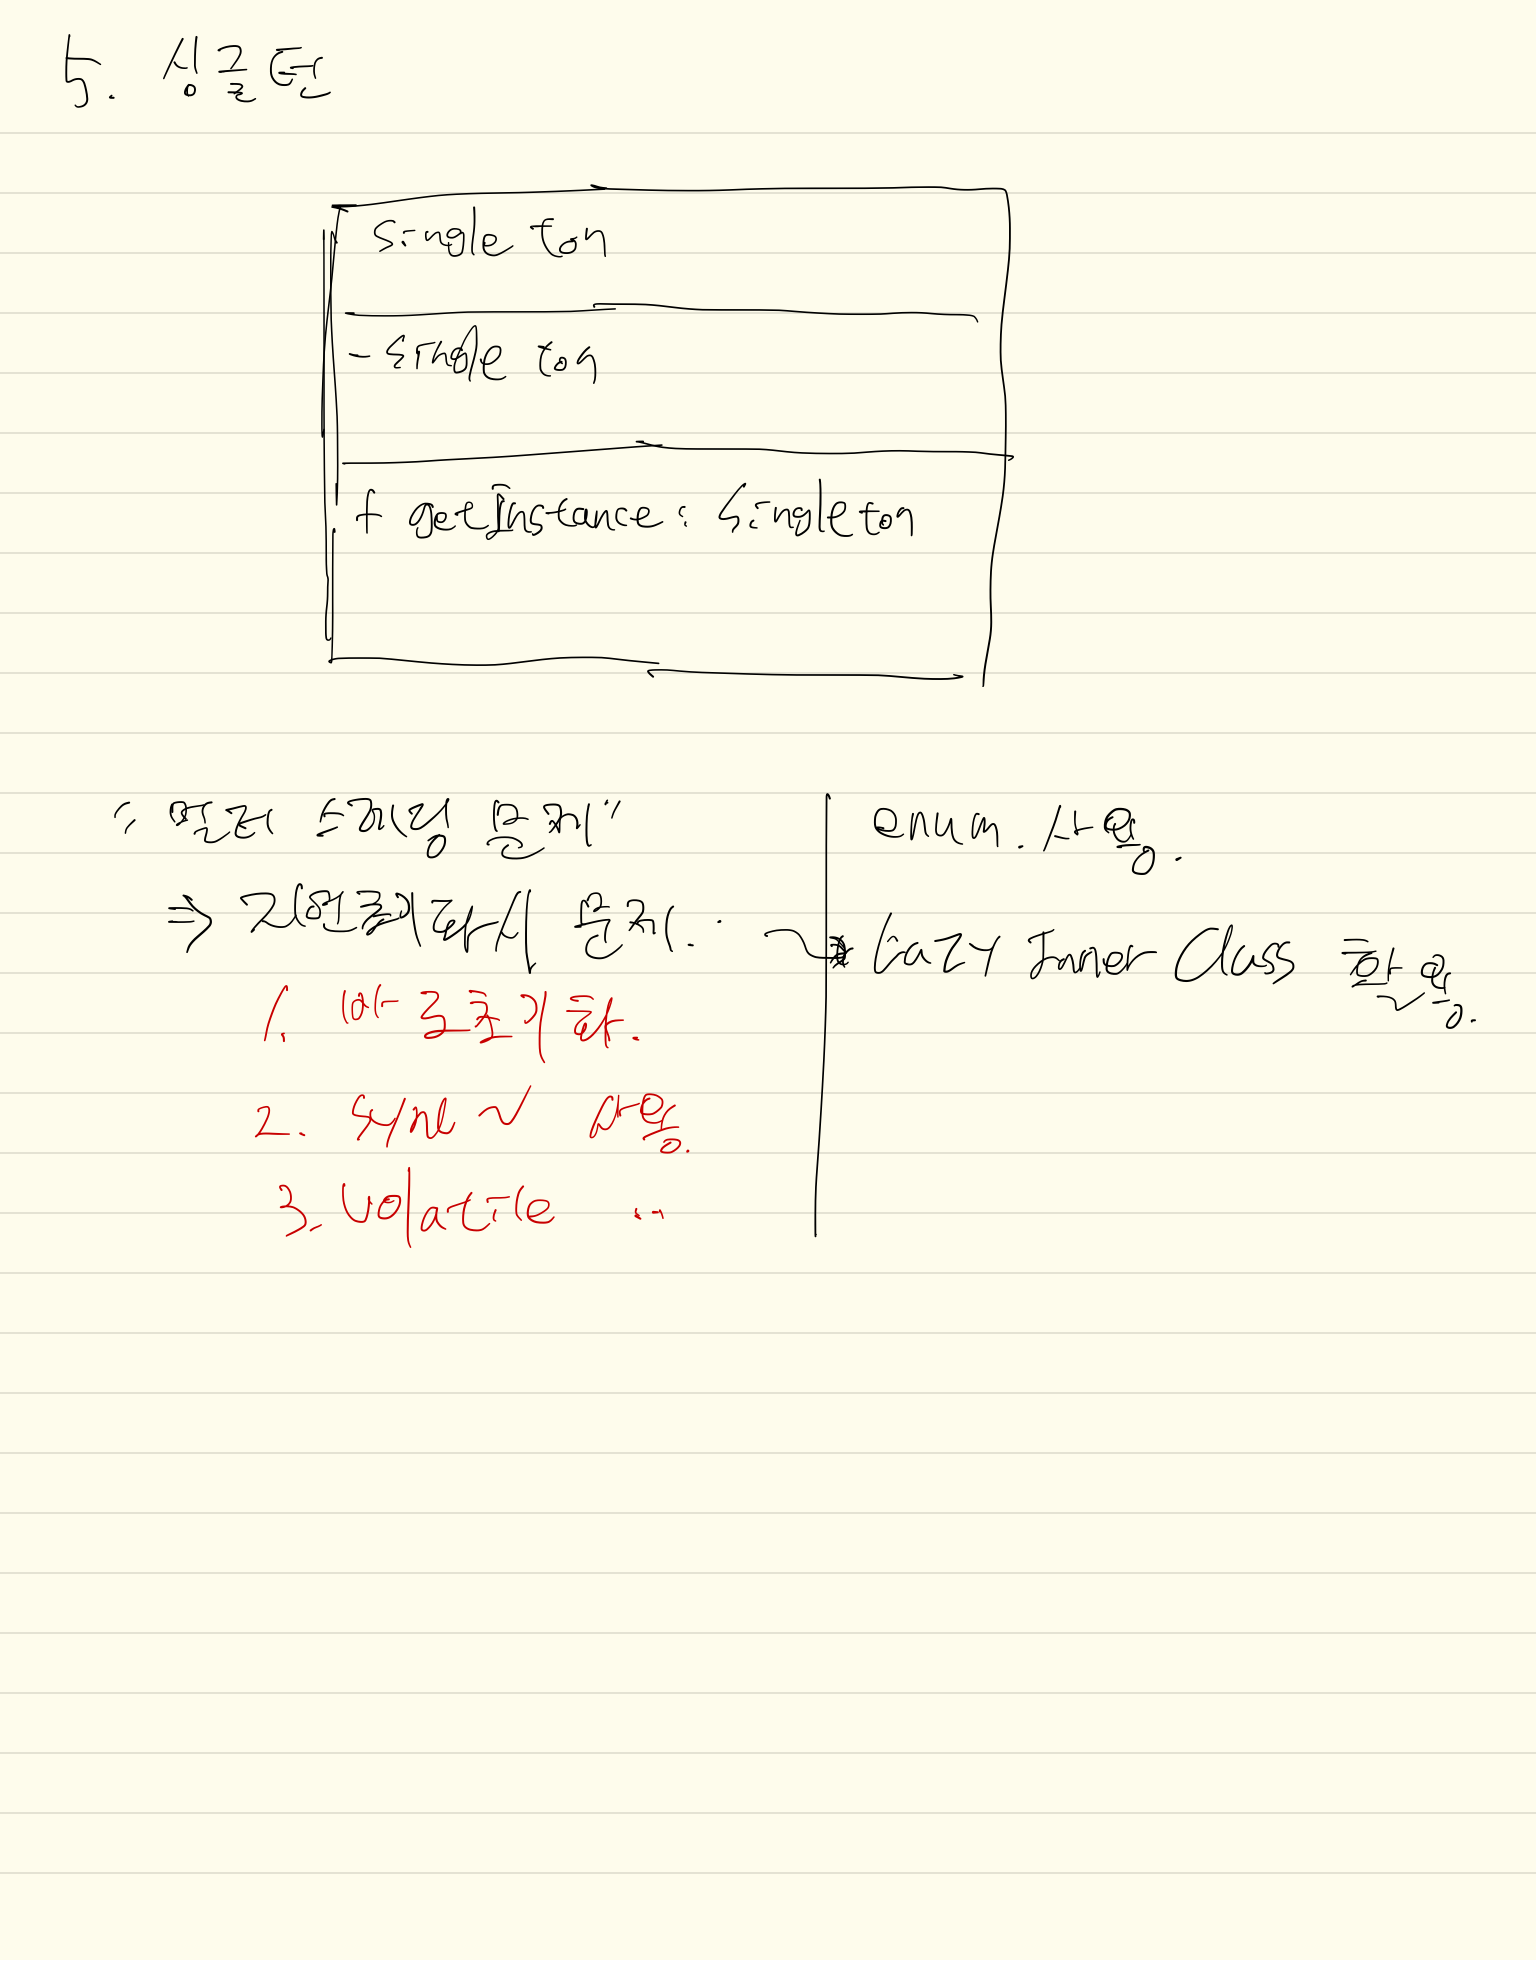 5. 싱글턴
Singleton
- Singleton
+ getInstance : Singleton
"멀티 스레딩 문제"
⇒ 지연초기화시 문제.
1. 바로초기화.
2. sync ~ 사용.
3. Volatile ..
enum. 사용.
Lazy Inner Class 활용.